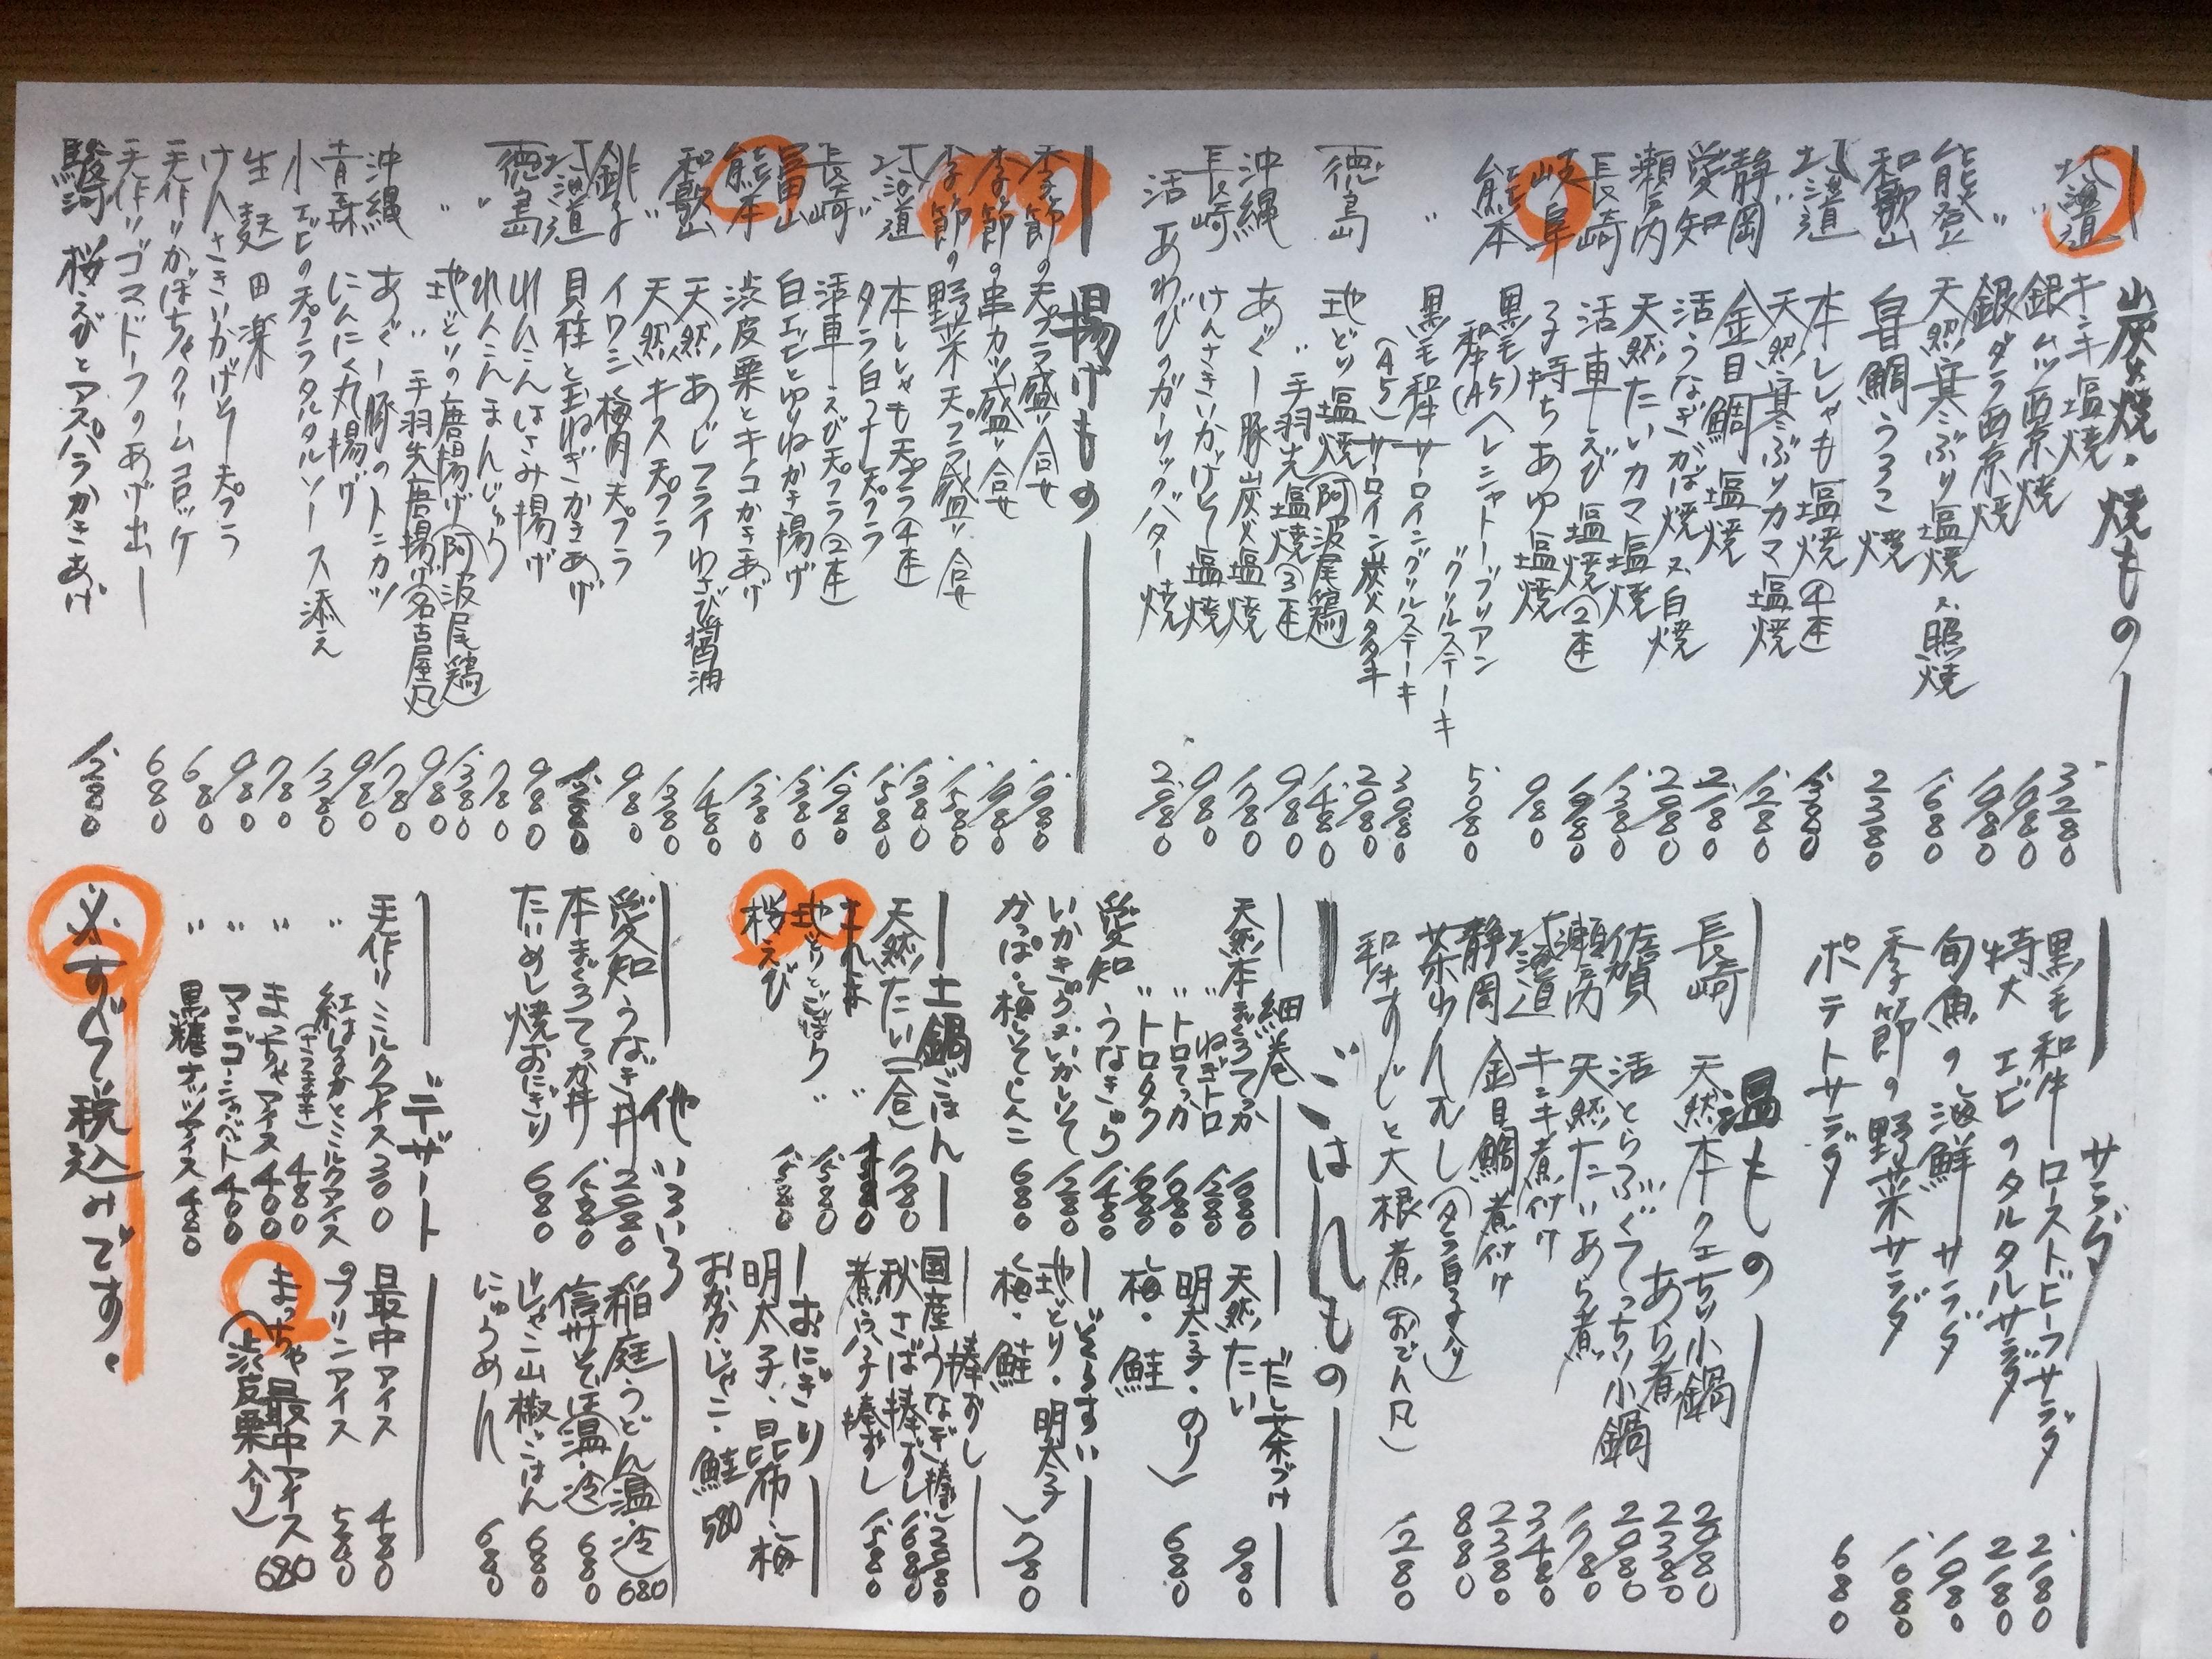 炭火焼・焼もの
北海道 キンキ塩焼 3280
〃 銀ムツ西京焼 1980
銀ダラ西京焼 1980
能登 天然寒ぶり塩焼 又 照焼 1680
和歌山 甘鯛うろこ焼 2380
北海道 本ししゃも塩焼(4本) 1380
〃 天然寒ぶりカマ塩焼 1280
静岡 金目鯛塩焼 2180
愛知 活うなぎがば焼 又 白焼 2980
瀬戸内 天然たいカマ塩焼 1380
長崎 活車えび塩焼(2本) 1980
岐阜 子持ちあゆ塩焼 980
熊本 黒毛和牛(A5)ヘレシャトーブリアングリルステーキ 5980
〃 黒毛和牛サーロイングリルステーキ 3980
(A5)サーロイン炭火タタキ 2980
徳島 地どり塩焼(阿波尾鶏) 1480
〃 手羽先塩焼(3本) 980
沖縄 あぐー豚炭火塩焼 1780
長崎 けんさきいかげそ塩焼 980
活あわびのガーリックバター焼 2980
揚げもの
季節の天プラ盛り合せ 1980
季節の串カツ盛り合せ 1980
季節の野菜天プラ盛り合せ 1580
北海道 本ししゃも天プラ(4本) 1380
〃 タラ白子天プラ 1580
長崎 活車えび天プラ(2本) 1980
富山 白エビとゆりねかき揚げ 1380
熊本 渋皮栗とキノコかきあげ 1380
和歌山 天然あじフライわさび醤油 1480
〃 天然キス天プラ 1380
銚子 イワシ梅肉天プラ 980
北海道 貝柱と玉ねぎかきあげ 1280
徳島 れんこんはさみ揚げ 980
〃 れんこんまんじゅう 780
〃 地どりの唐揚げ(阿波尾鶏) 1380
〃 手羽先唐揚げ(名古屋風) 980
沖縄 あぐー豚のトンカツ 1780
青森 にんにく丸揚げ 980
小エビの天プラタルタルソース添え 1380
生麩田楽 780
けんさきいかげそ天プラ 980
手作りかぼちゃクリームコロッケ 680
手作りゴマドーフのあげ出し 680
駿河 桜えびとアスパラかきあげ 1280
サラダ
黒毛和牛ローストビーフサラダ 2180
特大エビのタルタルサラダ 2180
旬魚の海鮮サラダ 1980
季節の野菜サラダ 1080
ポテトサラダ 680
温もの
長崎 天然本クエちり小鍋 2980
あら煮 2380
佐賀 活とらふぐてっちり小鍋 2980
瀬戸内 天然たいあら煮 1780
北海道 キンキ煮付け 3480
静岡 金目鯛煮付け 2380
茶わんむし(タラ白子入り) 880
和牛すじと大根煮(おでん風) 1280
ごはんもの
細巻
天然本まぐろてっか 1680
〃 ねぎトロ 1280
〃 トロてっか 1680
〃 トロタク
愛知 うなきゅう 1480
いかきゅう・いかしそ 1280
かっぱ・梅しそしんこ 680
だし茶づけ
天然たい 980
明太子・のり
梅・鮭 680
ぞうすい
地どり・明太子
梅・鮭 780
土鍋ごはん
天然たい(一合) 1780
さんま 〃
地どりとごぼう 〃 1580
桜えび 1580
棒ずし
国産うなぎ棒ずし 2980
秋さば棒ずし 1680
煮穴子棒ずし 1580
おにぎり
明太子・昆布・梅
おかか・じゃこ・鮭 580
他いろいろ
愛知 うなぎ丼 2980
本まぐろてっか丼 1580
たいめし焼おにぎり 680
稲庭うどん(温・冷) 680
信州そば(温・冷) 680
じゃこ山椒ごはん 680
にゅうめん 680
デザート
手作りミルクアイス 300
〃 紅はるかとミルクアイス(さつまいも) 480
〃 まっちゃアイス 400
〃 マンゴーシャーベット 400
〃 黒糖ナッツアイス 480
最中アイス 480
プリンアイス 580
まっちゃ最中アイス(渋皮栗入り) 680
必ずべて税込みです。